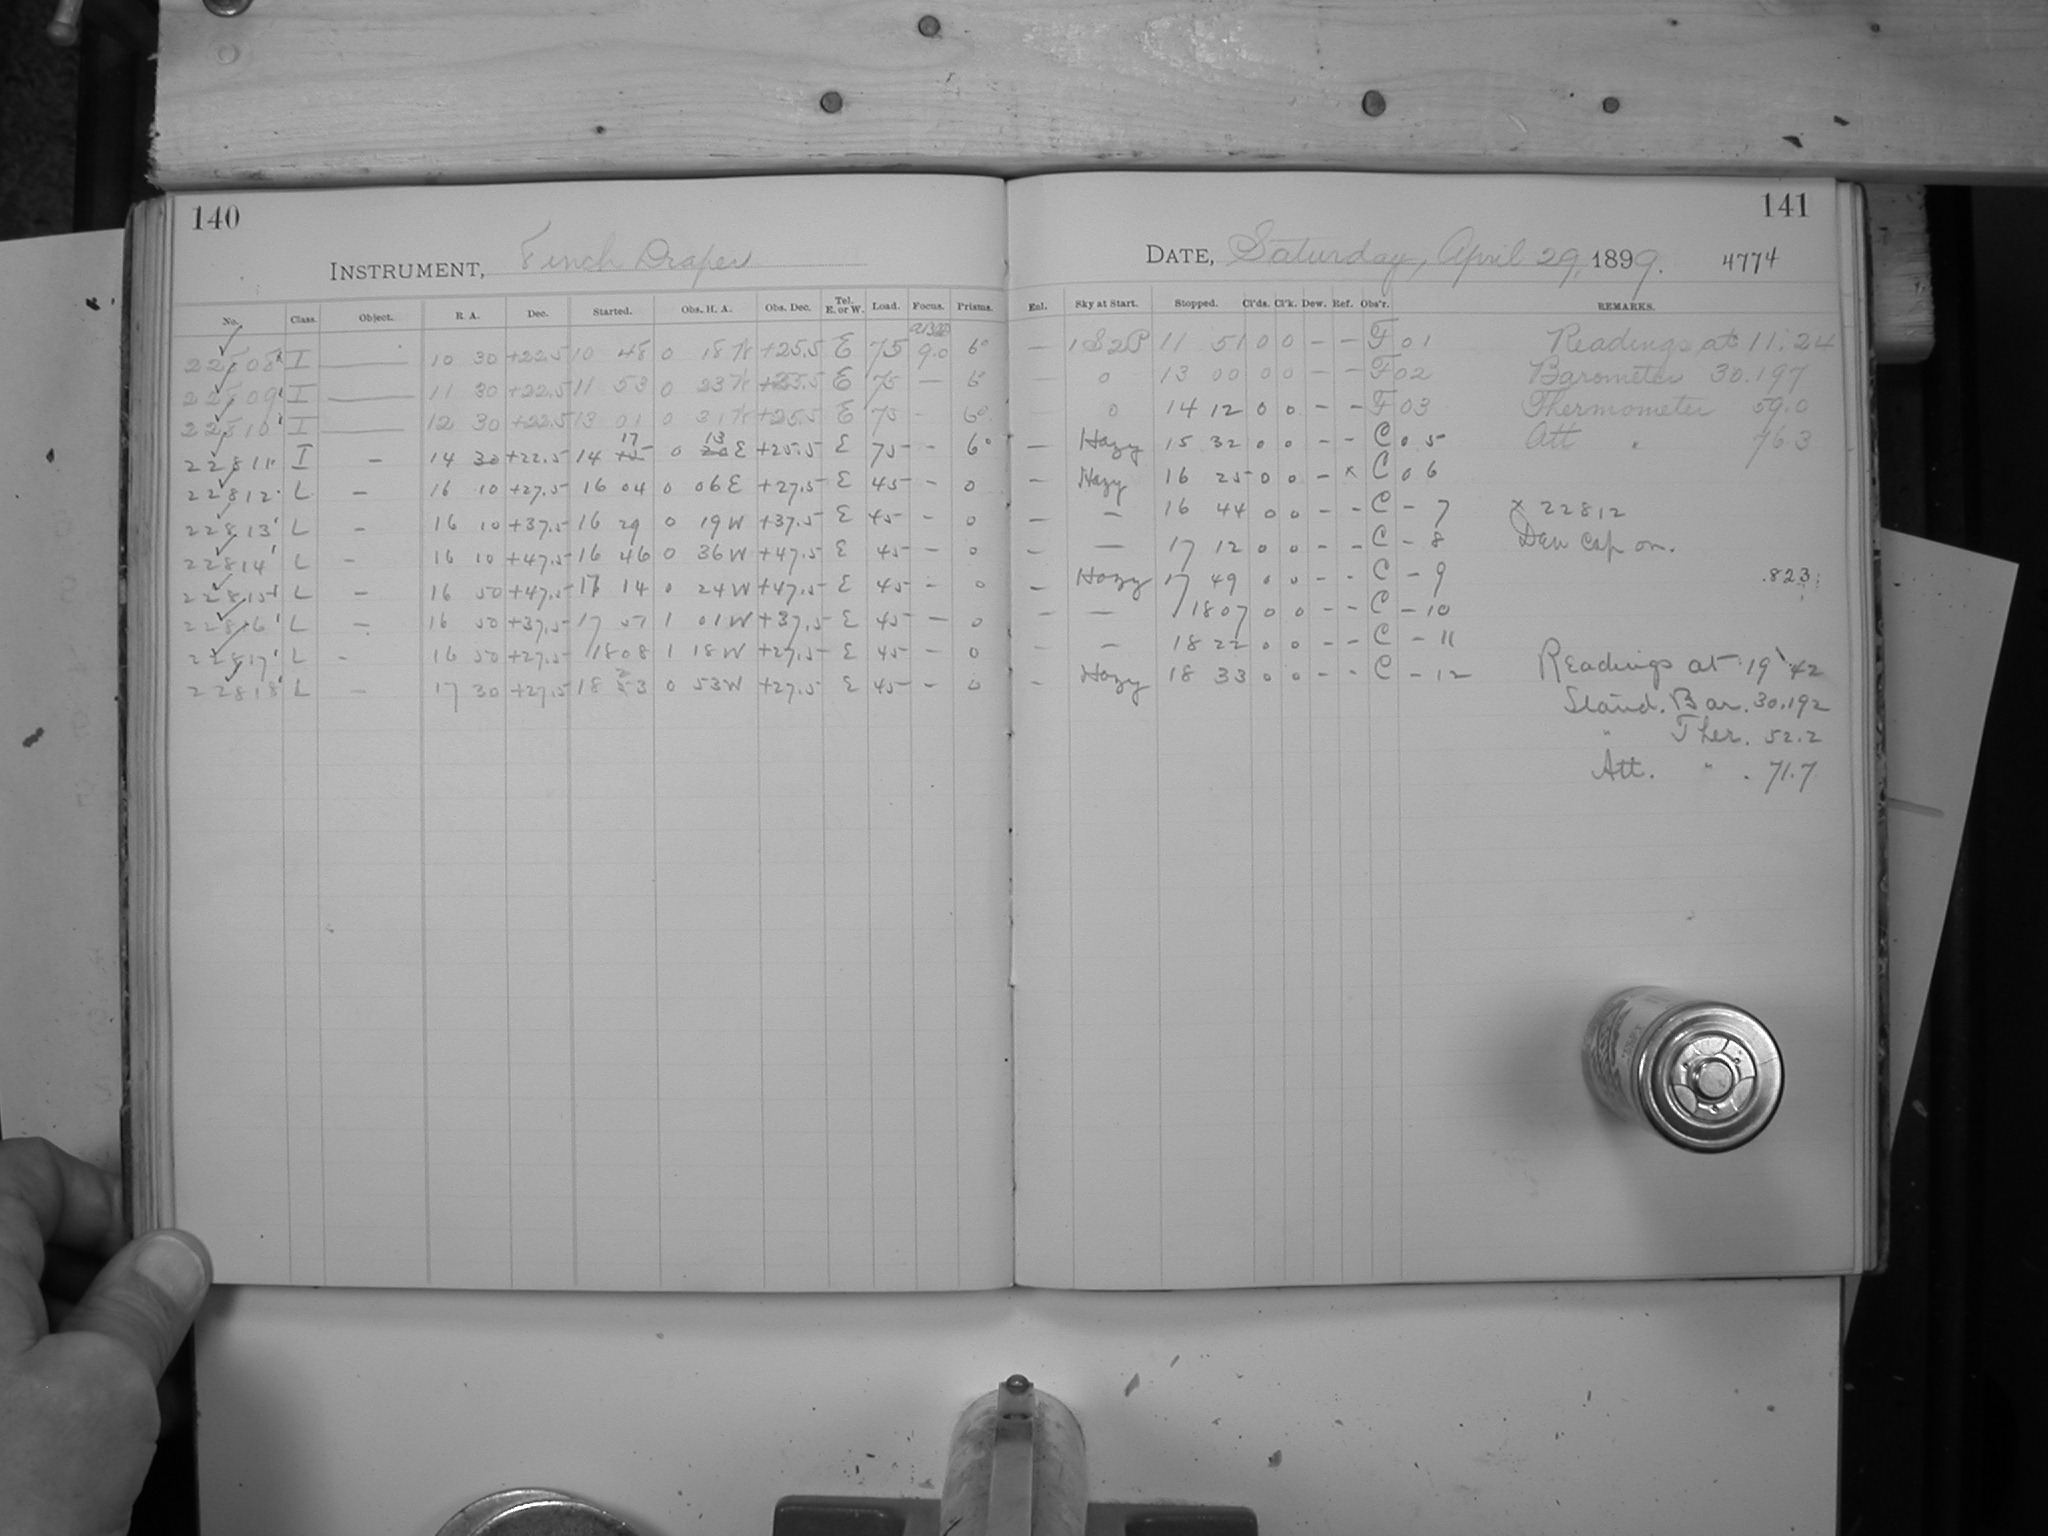 140
INSTRUMENT, 8 inch Draper
No. Class. Object. R. A. Dec. Started. Obs. H. A. Obs. Dec. Tel. E. or W. Load. Focus. Prisms.
22808 I — 10 30 +22.5 10 48 0 18 W +25.5 E 75 9.0 6°
22809 I — 11 30 +22.5 11 53 0 23 W +25.5 E 75 — 6°
22810 I — 12 30 +22.5 13 01 0 31 W +25.5 E 75 - 6°
22811 I — 14 30 +22.5 14 17 0 13 E +25.5 E 75 - 6°
22812 L — 16 10 +27.5 16 04 0 06 E +27.5 E 45 - 0
22813 L — 16 10 +37.5 16 29 0 19 W +37.5 E 45 - 0
22814 L — 16 10 +47.5 16 46 0 36 W +47.5 E 45 - 0
22815 L — 16 50 +47.5 17 14 0 24 W +47.5 E 45 - 0
22816 L — 16 50 +37.5 17 51 1 01 W +37.5 E 45 - 0
22817 L - 16 50 +27.5 18 08 1 18 W +27.5 E 45 - 0
22818 L — 17 30 +27.5 18 23 0 53 W +27.5 E 45 - 0
141
DATE, Saturday, April 29, 1899. 4774
Enl. Sky at Start. Stopped. Cl'ds. Cl'k. Dew. Ref. Obs'r. REMARKS.
— 1S2P 11 51 0 0 - - F 01 Readings at 11:24
— 0 13 00 0 0 - - F 02 Barometer 30.197
0 14 12 0 0 - - F 03 Thermometer 59.0
— Hazy 15 32 0 0 - - C 05 Att " 76.3
— Hazy 16 25 0 0 - x C 06
— — 16 44 0 0 - - C - 7 x 22812
— — 17 12 0 0 - - C - 8 Dew cap on.
— Hazy 17 49 0 0 - - C - 9 .823
— — 18 07 0 0 - - C - 10
— 18 22 0 0 - - C - 11
- Hazy 18 33 0 0 - - C - 12 Readings at 19 42
Stand. Bar. 30.192
" Ther. 52.2
Att. " . 71.7